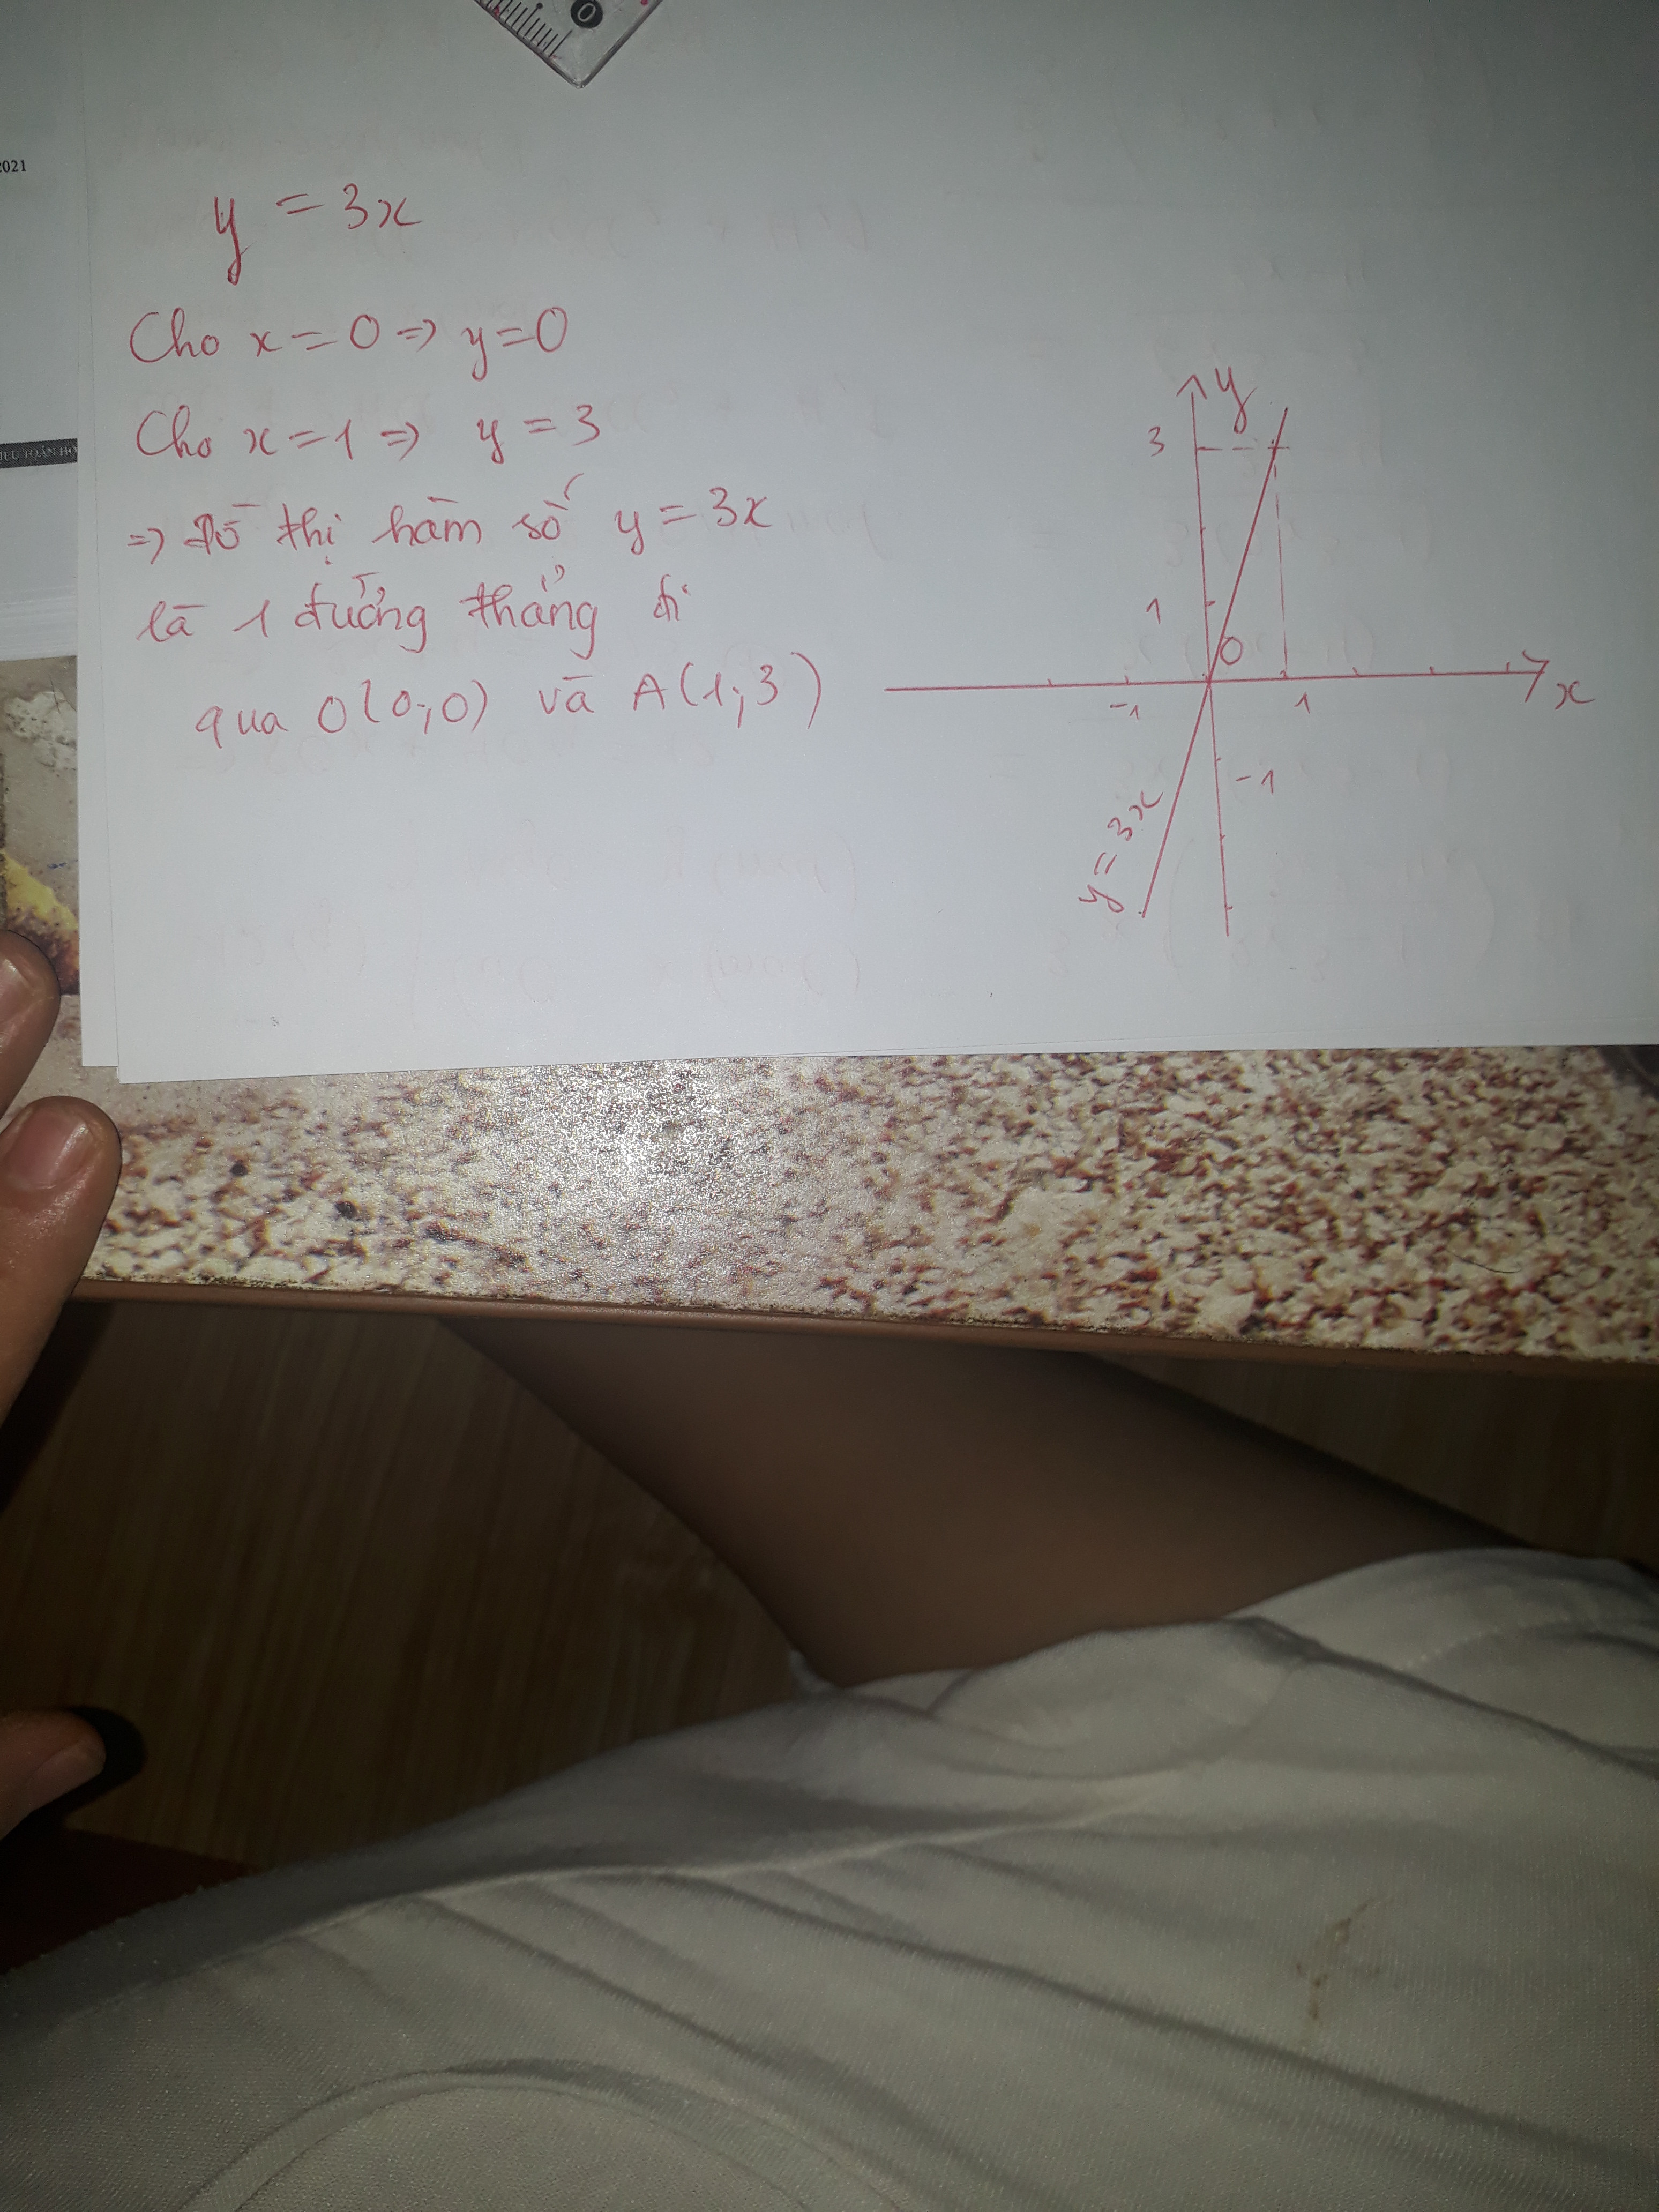 0
2021
y = 3x
Cho x = 0 => y = 0
Cho x = 1 => y = 3
=> Đồ thị hàm số y = 3x
là 1 đường thẳng đi
qua O(0;0) và A(1;3)
y
3
1
O
-1
1
x
-1
y = 3x